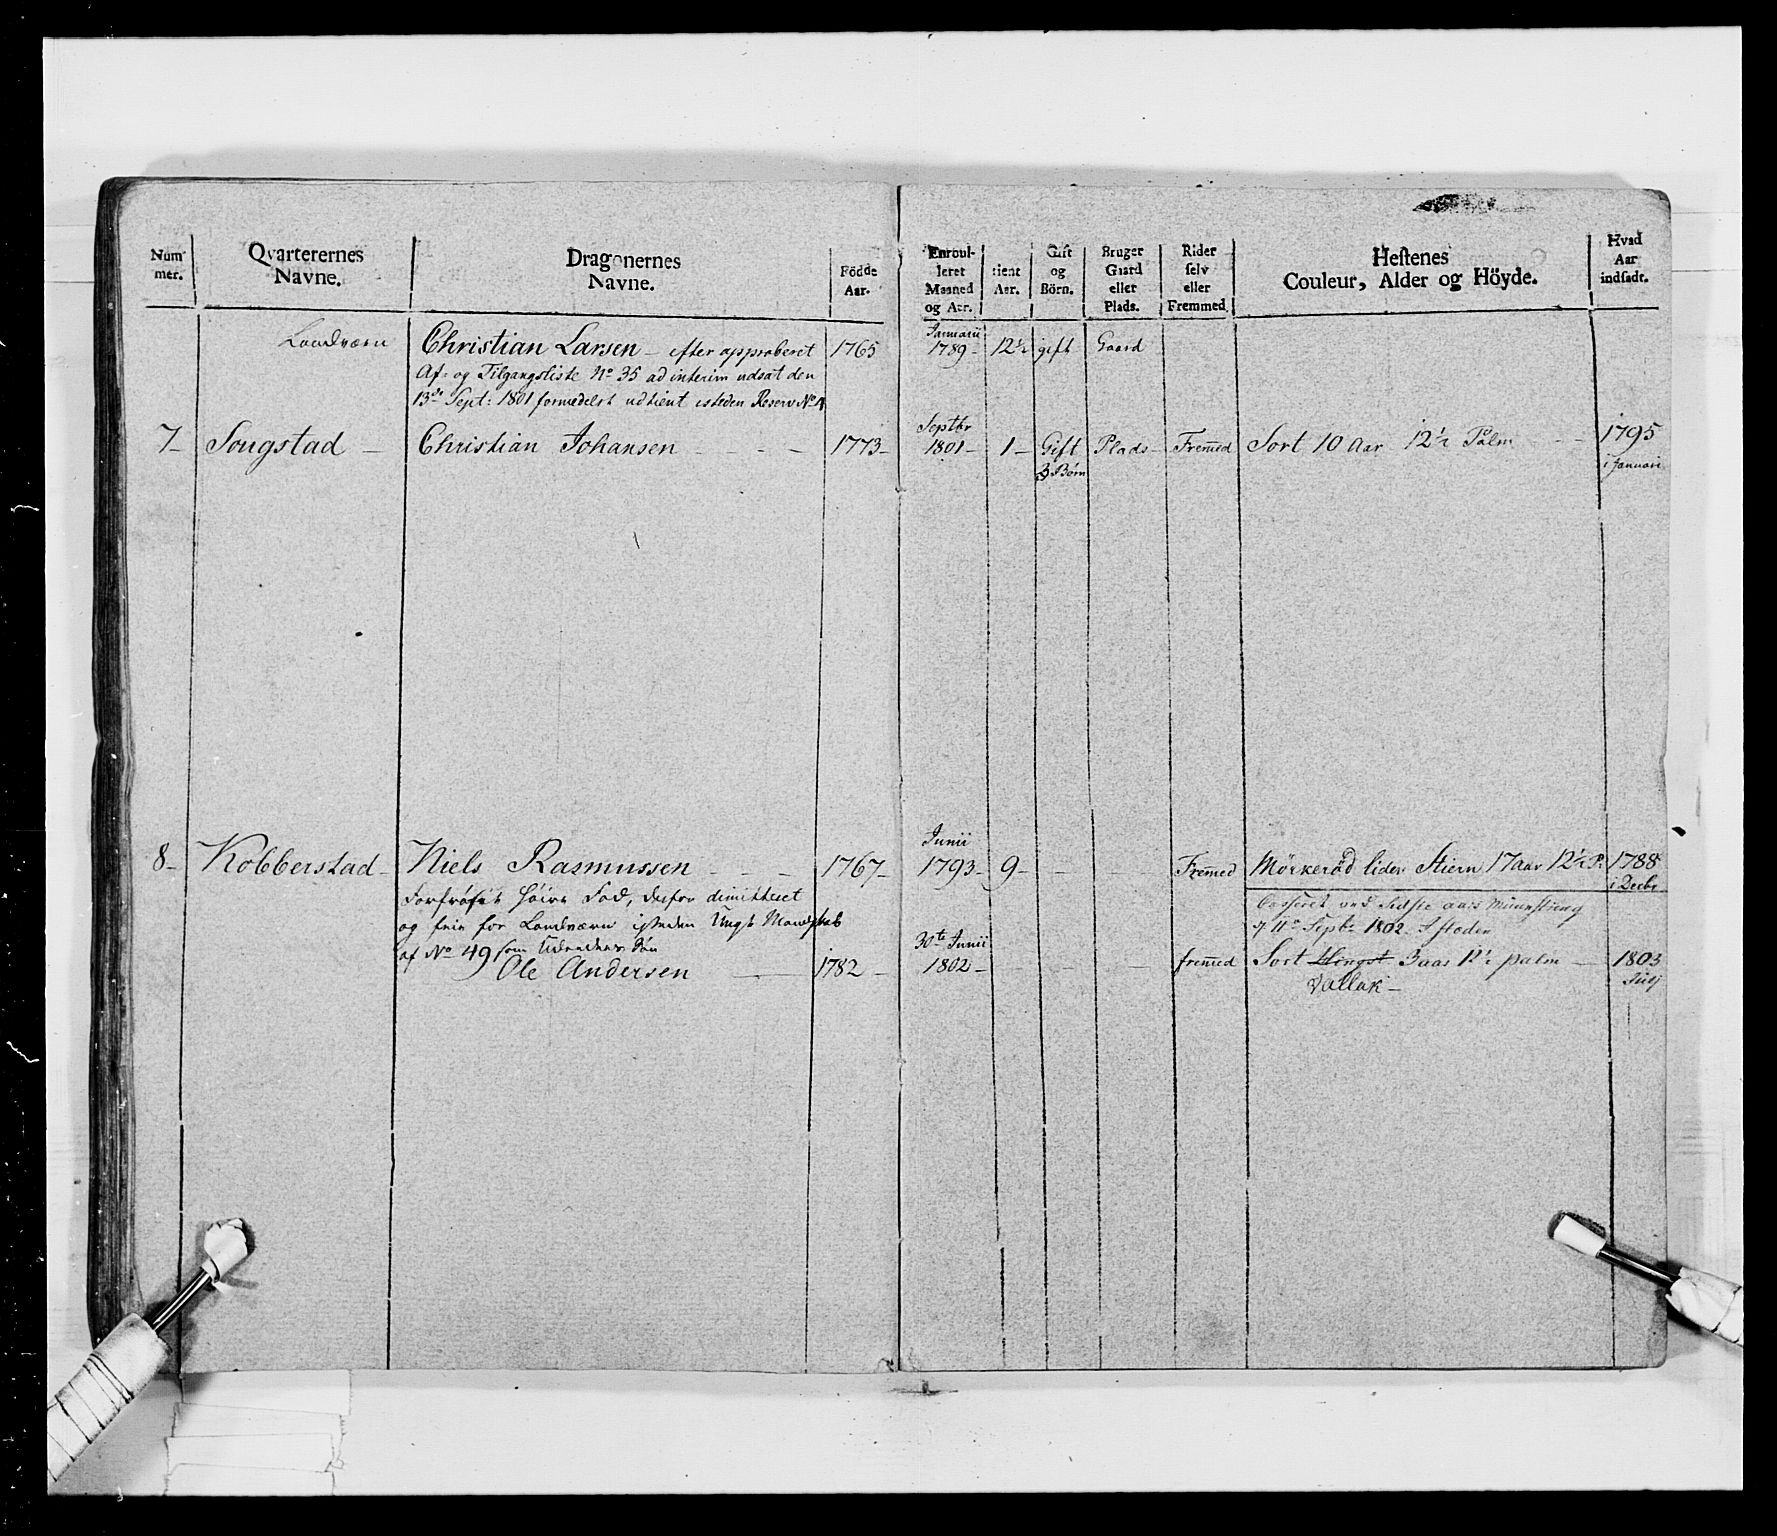 Num-
mer.
Qvarterernes
Navne.
Dragonernes
Navne.
Födde
Aar.
Enroul-
leret
Maaned
og Aar.
tient
Aar.
Gift
og
Börn.
Bruger
Gaard
eller
Plads.
Rider
selv
eller
Fremmed.
Hestenes
Couleur, Alder og Höyde.
Hvad
Aar
indsadt.
Landværn Christian Larsen - efter approberet 1765 Januarii 1789 - 12½ gift Gaard
Af- og Tilgangsliste No 35 ad interim udsat den
13de Sept: 1801 formedelst udtient isteden Reserv No 4
7 - Sougstad - Christian Johansen - - - - 1773 - Septbr 1801 - 1 - Gift 3 Børn Plads - Fremed Sort 10 Aar 12½ Palm - - 1795 i Januari
8 - Kobberstad - Niels Rasmussen - - - 1767 - Junii 1793 - 9 - - - Fremed Mörkeröd liden Stiern 17 Aar 12½ P: 1788 i Decbr
Forfrosset höire Fod, derfor dimitteret
og frie for Landværn isteden Ungt Mandskab
af No 49
Casseret ved sidste aars Mynstring
11te Septbr 1802. Isteden
Ole Andersen - 1782 - 30te Junii 1802 - - - fremed Sort Hingst 3 aar 12½ palm - 1803 Julj
Vallak -